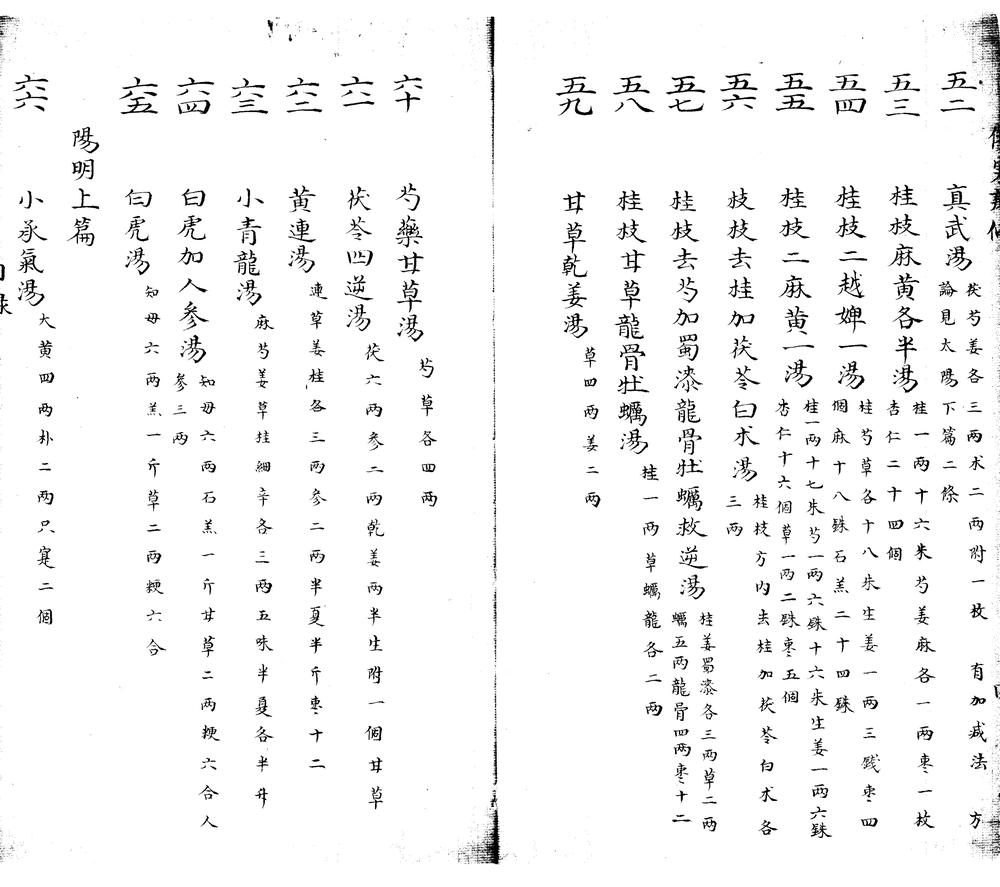 五二 真武湯 茯芍姜各三兩朮二兩附一枚 有加减法 方
論見太陽下篇二條
五三 桂枝麻黄各半湯 桂一兩十六朱芍姜麻各一兩枣一枚
杏仁二十四個
五四 桂枝二越婢一湯 桂芍草各十八朱生姜一兩三戔枣四
個麻十八銖石羔二十四銖
五五 桂枝二麻黄一湯 桂一兩十七朱芍一兩六銖十六朱生姜一兩六銖
杏仁十六個草一兩二銖枣五個
五六 枝枝去桂加茯苓白朮湯 桂枝方内去桂加茯苓白朮各
三兩
五七 桂枝去芍加蜀漆龍骨牡蠣救逆湯 桂姜蜀漆各三兩草二兩
蠣五兩龍骨四兩枣十二
五八 桂枝甘草龍骨牡蠣湯 桂一兩草蠣龍各二兩
五九 甘草乾姜湯 草四兩姜二兩
六十 芍藥甘草湯 芍草各四兩
六一 茯苓四逆湯 茯六兩參二兩乾姜兩半生附一個甘草
六二 黄連湯 連草姜桂各三兩參二兩半夏半斤枣十二
六三 小青龍湯 麻芍姜草桂細辛各三兩五味半夏各半升
六四 白虎加人參湯 知母六兩石羔一斤甘草二兩粳六合人
參三兩
六五 白虎湯 知母六兩羔一斤草二兩粳六合
陽明上篇
六六 小承氣湯 大黄四兩朴二兩只寔二個